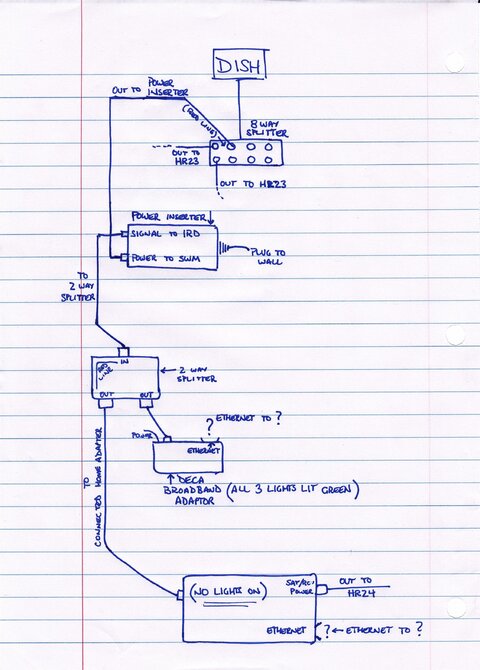 DISH
OUT TO POWER
INSERTER
(RED LINE)
8 WAY
SPLITTER
OUT TO
HR23
OUT TO HR23
POWER INSERTER
SIGNAL TO IRD
POWER TO SWM
PLUG TO
WALL
TO
2 WAY
SPLITTER
IN
RED
LINE
OUT
OUT
2 WAY
SPLITTER
? ETHERNET TO ?
POWER
ETHERNET
DECA
BROADBAND (ALL 3 LIGHTS LIT GREEN)
ADAPTOR
TO
CONNECTED HOME ADAPTER
(NO LIGHTS ON)
POWER
OUT TO
HR24
ETHERNET ? ETHERNET TO ?